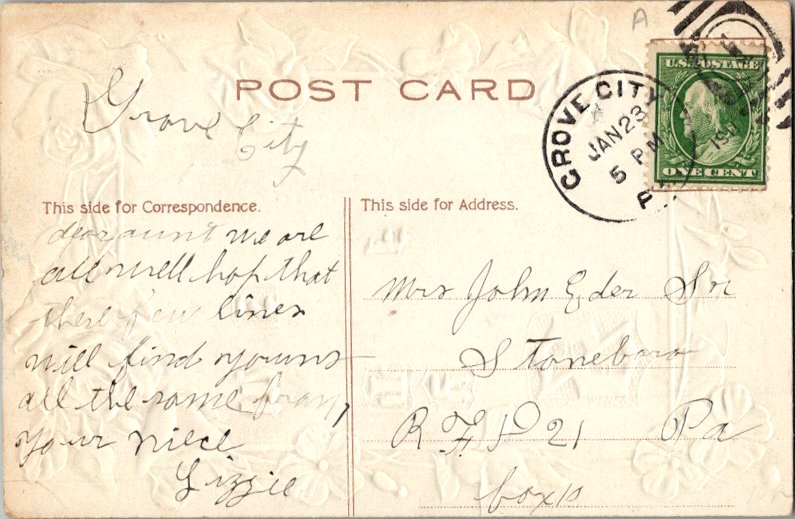 A
POST CARD
Grove City
GROVE CITY
JAN 23
5 PM
U.S. POSTAGE
ONE CENT
This side for Correspondence.
dear aunt we are
all well hop that
these few lines
will find youns
all the same from
your niece
Lizzie
This side for Address.
Mrs John Eder Sr
Stoneboro
RFD 21 Pa
box 10